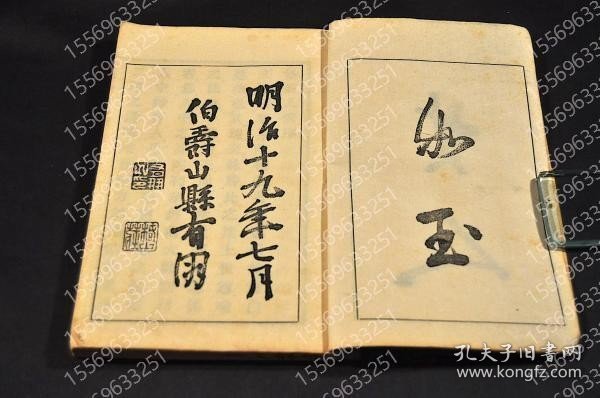 如玉
明治十九年七月
伯爵山縣有朋
15569633251
孔夫子旧书网
www.kongfz.com